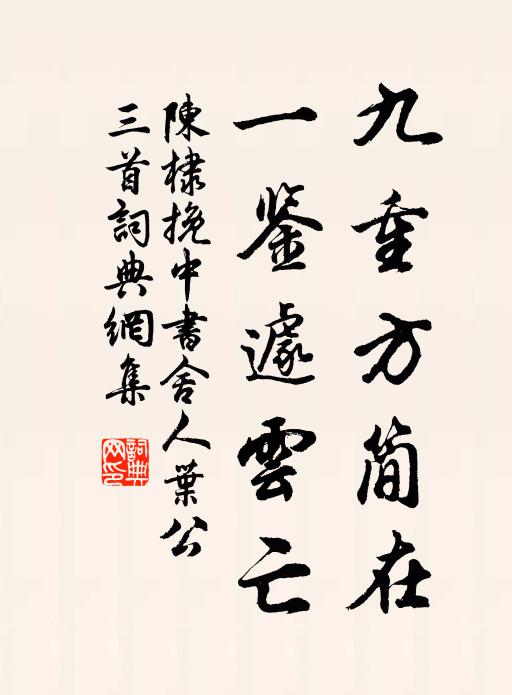 九重方简在
一鉴遽雲亡
陳棣挽中書舍人葉公
三首詞典網集
詞典網印